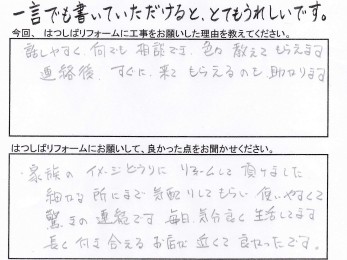 一言でも書いていただけると、とてもうれしいです。
今回、はつしばリフォームに工事をお願いした理由を教えてください。
話しやすく 何でも 相談でき、色々 教えて もらえます
連絡後、すぐに、来て もらえるのも 助かります
はつしばリフォームにお願いして、良かった点をお聞かせください。
・家族の イメージどうりに リフォームして 頂けました
細かな 所にまで 気配りしてもらい 使いやすくて
驚きの 連続です 毎日 気分良く 生活してます
長く 付き合える お店が 近くて 良かったです。